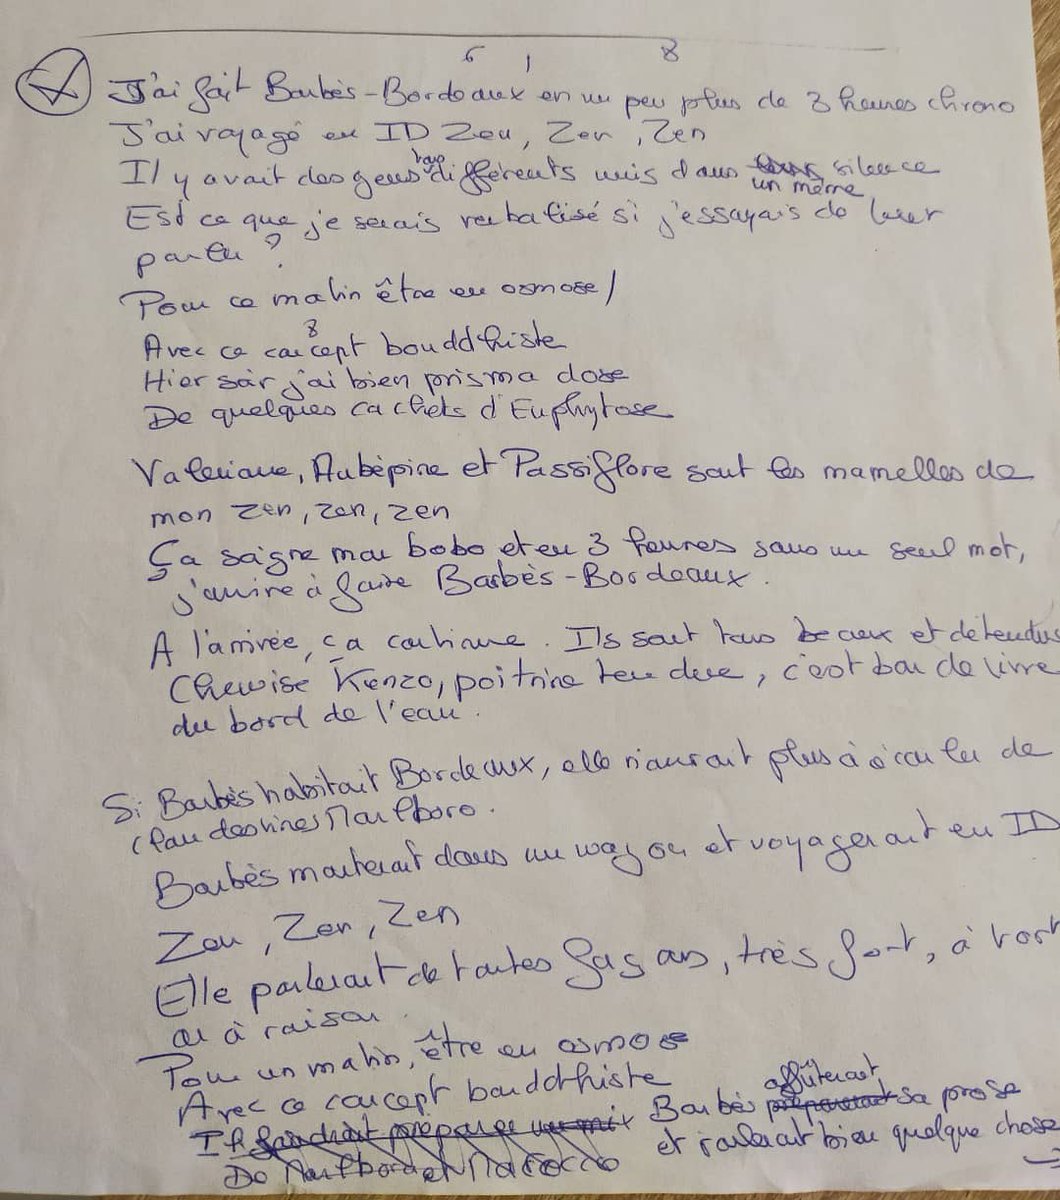 6 1 8
J'ai fait Barbès-Bordeaux en un peu plus de 3 heures chrono
J'ai voyagé en ID Zen, Zen, Zen
Il y avait des gens tous différents mais dans un même silence
Est ce que je serais verbalisé si j'essayais de leur
parler ?
Pour ce matin être en osmose /
8
Avec ce concept bouddhiste
Hier soir j'ai bien pris ma dose
De quelques cachets d'Euphytose
Valeriane, Aubépine et Passiflore sont les mamelles de
mon zen, zen, zen
Ça saigne mon bobo et en 3 heures sans un seul mot,
j'arrive à faire Barbès-Bordeaux.
A l'arrivée, ça continue. Ils sont tous beaux et détendus
Chemise Kenzo, poitrine tendue, c'est bon de vivre
du bord de l'eau.
Si Barbès habitait Bordeaux, elle n'aurait plus à s'écouler de
clandestines Marlboro.
Barbès monterait dans un wagon et voyagerait en ID
Zen, Zen, Zen
Elle parlerait de toutes façons, très fort, à tort
ou à raison.
Pour un matin, être en osmose
Avec ce concept bouddhiste
Il faudrait Barbès affûterait sa prose
De Marlboro et Marocco et roulerait bien quelque chose